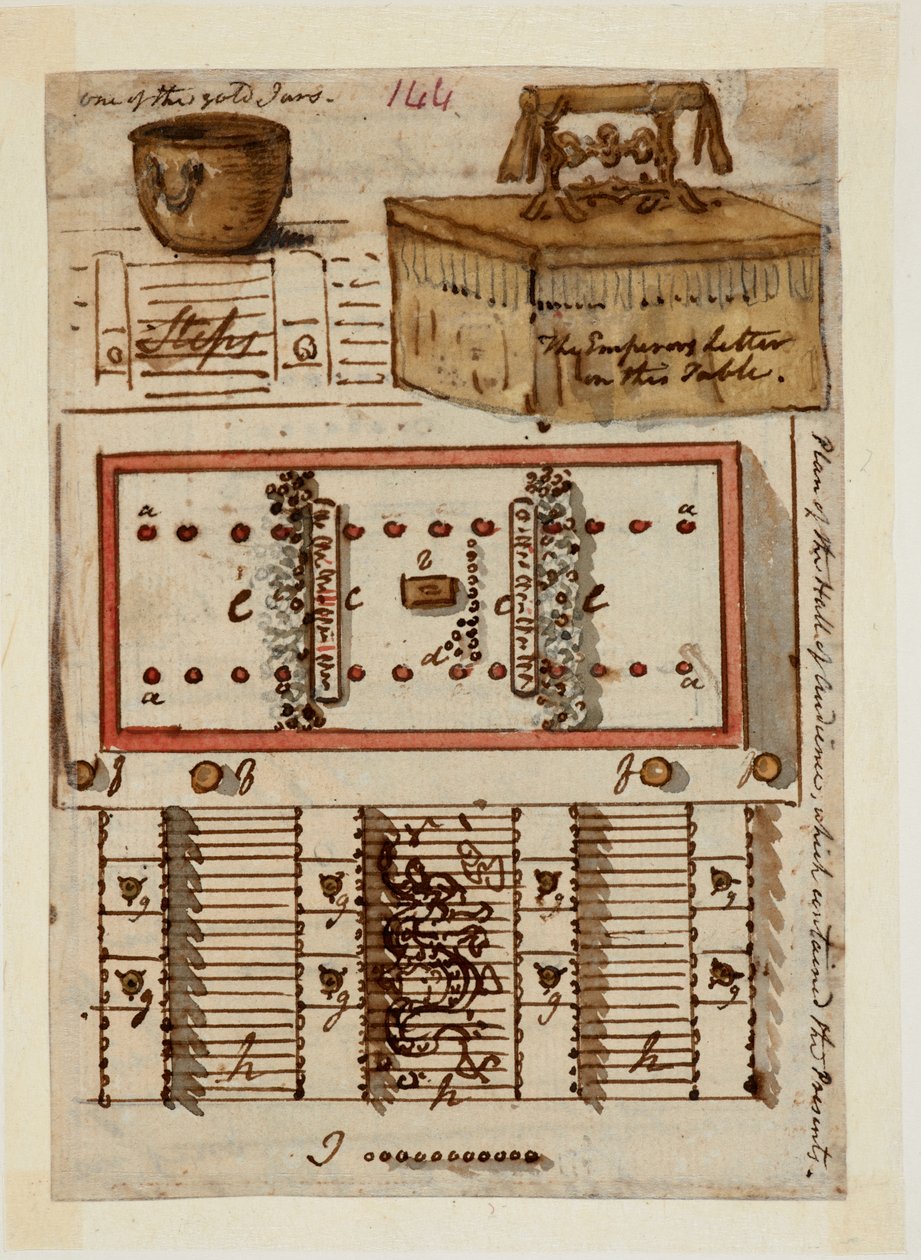 one of the gold Jars.
144
Steps
The Emperors Letter
on this Table.
Plan of the Hall of Audience, which contained the Presents.
a
a
e
c
c
e
d
a
a
f
f
f
g
g
g
g
g
g
g
g
h
h
h